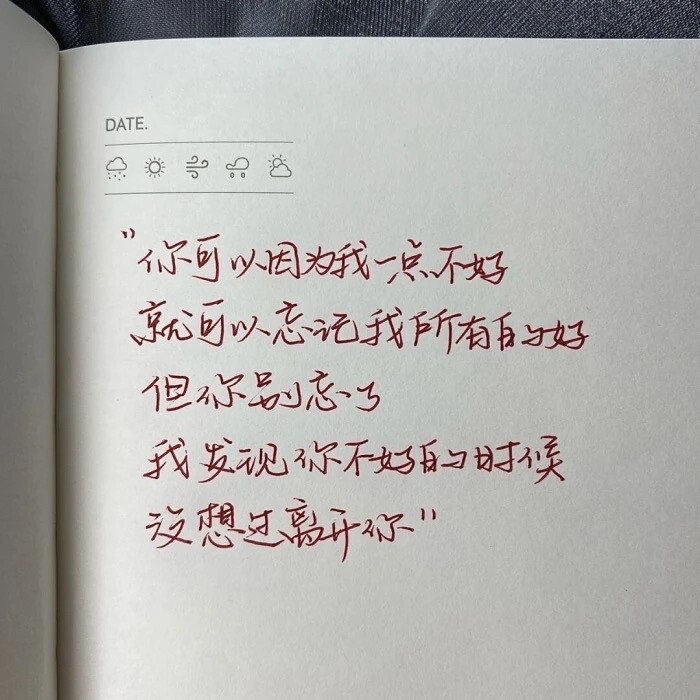 DATE.
“你可以因为我一点不好
就可以忘记我所有的好
但你别忘了
我发现你不好的时候
没想过离开你”